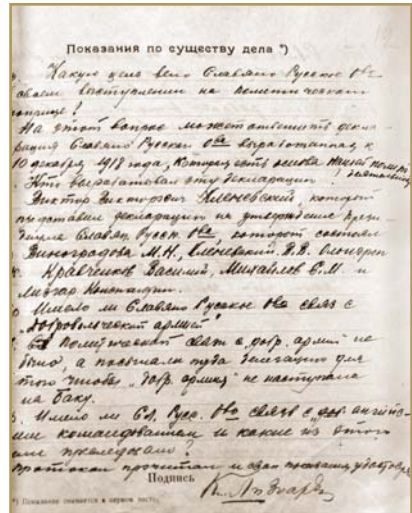 Показания по существу дела *)
Какую цель вело Славяно Русское О-во
своем выступлении на политическом
На этот вопрос может ответить декла-
рация Славяно Русского О-ва выработанная к
10 декабря 1918 года, которая есть основа нашей полит.
Кто выработал эту декларацию? деятельности
Виктор Викторович Кленевский, который
представил декларацию на утверждение през-
Славян. Русск. О-ва которого состояли
Виноградова М.Н., Кленевский. В.В.
Кравченков Василий, Михайлов С.М. и
Константин.
Имело ли Славяно Русское О-во связь с
"Добровольческой армией"
политической связи с "добр. армией" не
было, а посылали туда делегацию для
того чтобы "добр. армия" не наступала
на Баку.
Имело ли Сл. Русс. О-во связь с английс-
ким командованием и какие из этого
цели преследовали?
протокол прочитан и свои показания удостоверяю
Подпись
*) Показание снимается в первом листе.